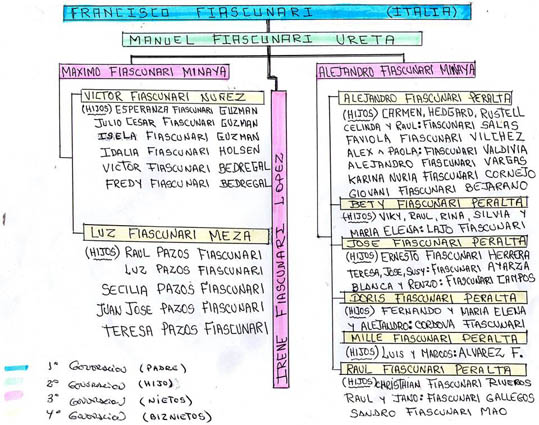 FRANCISCO FIASCUNARI (ITALIA)
MANUEL FIASCUNARI URETA
MAXIMO FIASCUNARI MINAYA
VICTOR FIASCUNARI NUÑEZ
(HIJOS) ESPERANZA FIASCUNARI GUZMAN
JULIO CESAR FIASCUNARI GUZMAN
ISELA FIASCUNARI GUZMAN
IDALIA FIASCUNARI HOLSEN
VICTOR FIASCUNARI BEDREGAL
FREDY FIASCUNARI BEDREGAL
LUZ FIASCUNARI MEZA
(HIJOS) RAUL PAZOS FIASCUNARI
LUZ PAZOS FIASCUNARI
SECILIA PAZOS FIASCUNARI
JUAN JOSE PAZOS FIASCUNARI
TERESA PAZOS FIASCUNARI
IRENE FIASCUNARI LOPEZ
ALEJANDRO FIASCUNARI MINAYA
ALEJANDRO FIASCUNARI PERALTA
(HIJOS) CARMEN, HEDGARD, RUSTELL
CELINDA y RAUL: FIASCUNARI SALAS
FAVIOLA FIASCUNARI VILCHEZ
ALEX ^ PAOLA: FIASCUNARI VALDIVIA
ALEJANDRO FIASCUNARI VARGAS
KARINA NURIA FIASCUNARI CORNEJO
GIOVANI FIASCUNARI BEJARANO
BETY FIASCUNARI PERALTA
(HIJOS) VIKY, RAUL, RINA, SILVIA Y
MARIA ELENA: LAJO FIASCUNARI
JOSE FIASCUNARI PERALTA
(HIJOS) ERNESTO FIASCUNARI HERRERA
TERESA, JOSE, SUSY: FIASCUNARI AYARZA
BLANCA y RENZO: FIASCUNARI CAMPOS
DORIS FIASCUNARI PERALTA
(HIJOS) FERNANDO Y MARIA ELENA
Y ALEJANDRO: CORDOVA FIASCUNARI
MILLE FIASCUNARI PERALTA
(HIJOS) LUIS y MARCOS: ALVAREZ F.
RAUL FIASCUNARI PERALTA
(HIJOS) CHRISTHIAN FIASCUNARI RIVEROS
RAUL y JANO: FIASCUNARI GALLEGOS
SANDRO FIASCUNARI MAO
1º GENERACION (PADRE)
2º GENERACION (HIJO)
3º GENERACION (NIETOS)
4º GENERACION (BIZNIETOS)